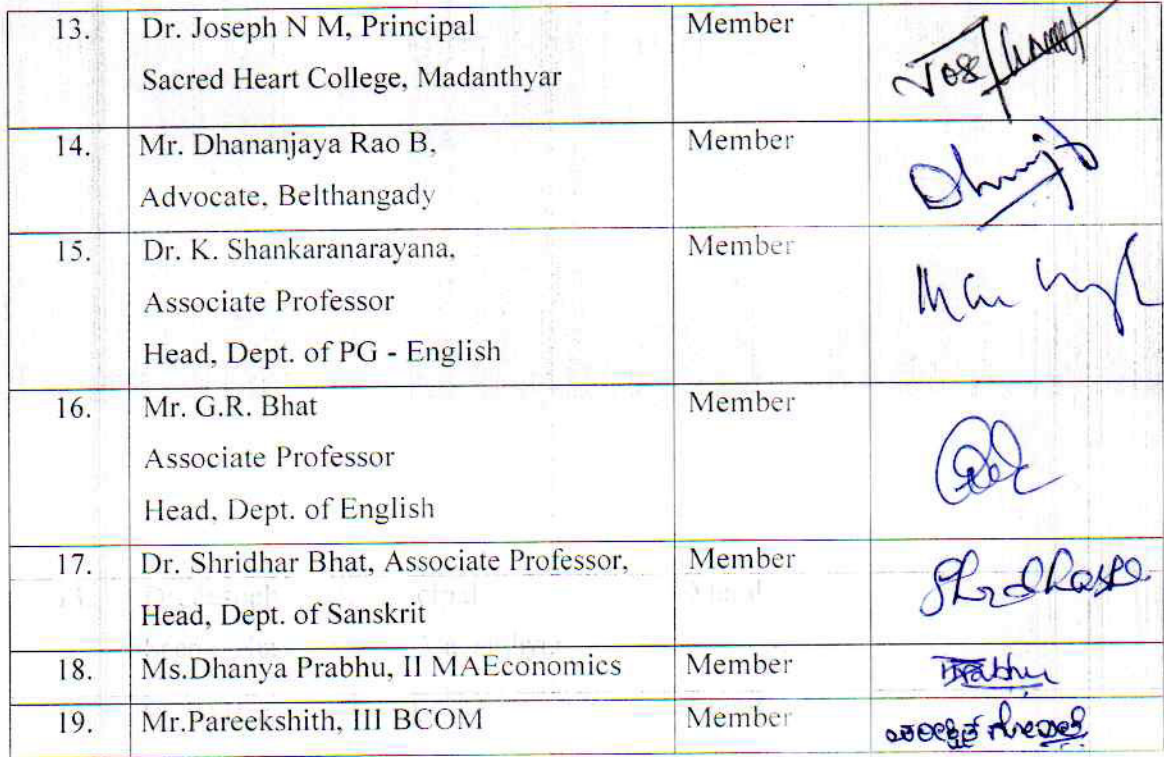 13. Dr. Joseph N M, Principal Member
Sacred Heart College, Madanthyar
14. Mr. Dhananjaya Rao B, Member
Advocate, Belthangady
15. Dr. K. Shankaranarayana, Member
Associate Professor
Head, Dept. of PG - English
16. Mr. G.R. Bhat Member
Associate Professor
Head, Dept. of English
17. Dr. Shridhar Bhat, Associate Professor, Member
Head, Dept. of Sanskrit
18. Ms.Dhanya Prabhu, II MAEconomics Member Prabhu
19. Mr.Pareekshith, III BCOM Member